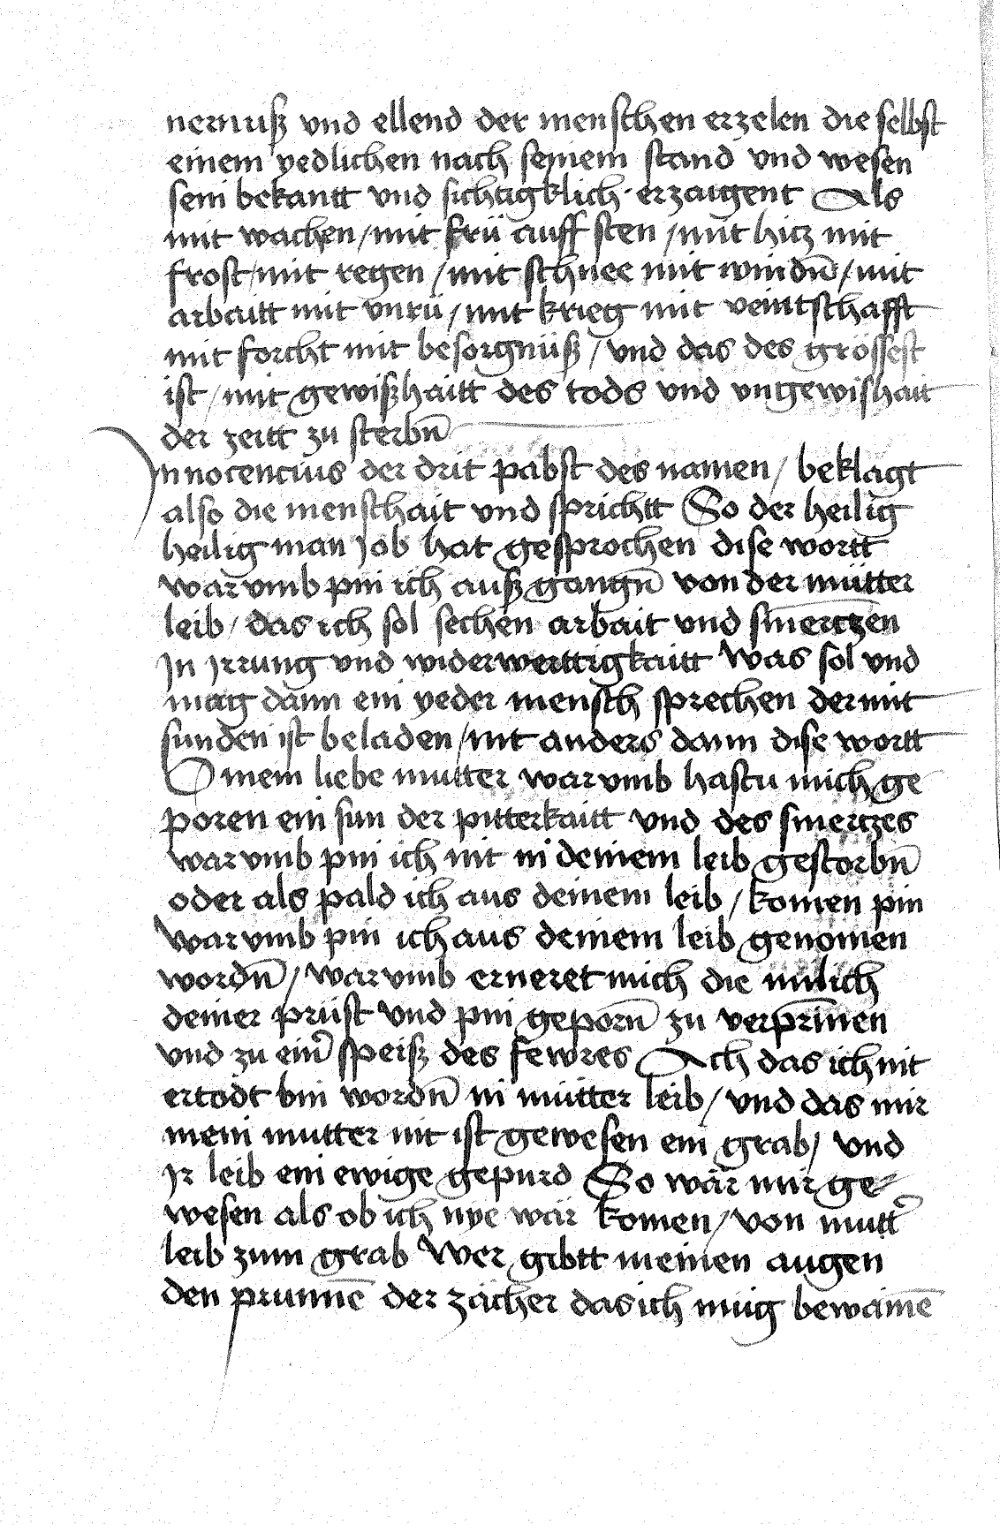 nernuß vnd ellend der menschen erzelen die selbst
einem yedlichen nach seinem stand vnd wesen
sein bekantt vnd sichtigklich erzaigent Als
mit wachen / mit frü auff sten / mit hicz mit
frost / mit regen / mit schnee mit windn̄ / mit
arbaitt mit vnrü / mit krieg mit veintschafft
mit forcht mit besorgnüß / vnd das des grössest
ist / mit gewißhaitt des tods vnd vngewishait
der zeitt zu sterbn̄
Innocencius der drit pabst des namen / beklagt
also die menschait vnd sprichtt So der heilig
heilig man Job hat gesprochen dise wortt
war vmb pin ich auß gangn̄ von der mütter
leib / das ich sol sechen arbait vnd smerczen
In Irrung vnd widerwerttigkaitt Was sol vnd
mag dann ein yeder mensch sprechen der mit
sunden ist beladen / nit anders dann dise wortt
O mein liebe mutter war vmb hastu mich ge
poren ein sun der pitterkaitt vnd des smerczes
war vmb pin ich nit in deinem leib gestorbn̄
oder als pald ich aus deinem leib / komen pin
War vmb pin ich aus deinem leib genomen
wordn̄ / war vmb erneret mich die milich
deiner prüst vnd pin geporn̄ zu verprīnen
vnd zu ein̄ speiß des fewres Ach das ich nit
ertodt bin wordn̄ in mütter leib / vnd das mir
mein mutter nit ist gewesen ein grab / vnd
Ir leib ein ewige gepurd So wär mir ge
wesen als ob ich nye wär komen / von mutt̄
leib zum grab Wer gibtt meinen augen
den prunnē der zächer das ich müg bewainē